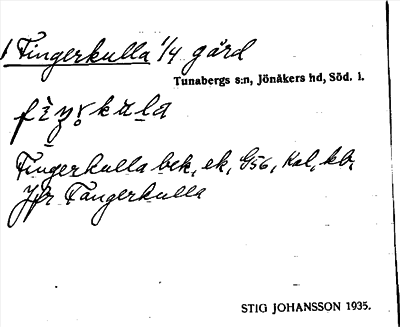 1 Fingerkulla 1/4 gård
Tunabergs s:n, Jönåkers hd, Söd. l.
Fingerkulla bek, ek, G56, Kal, kb,
Jfr Tangerkulla
STIG JOHANSSON 1935.